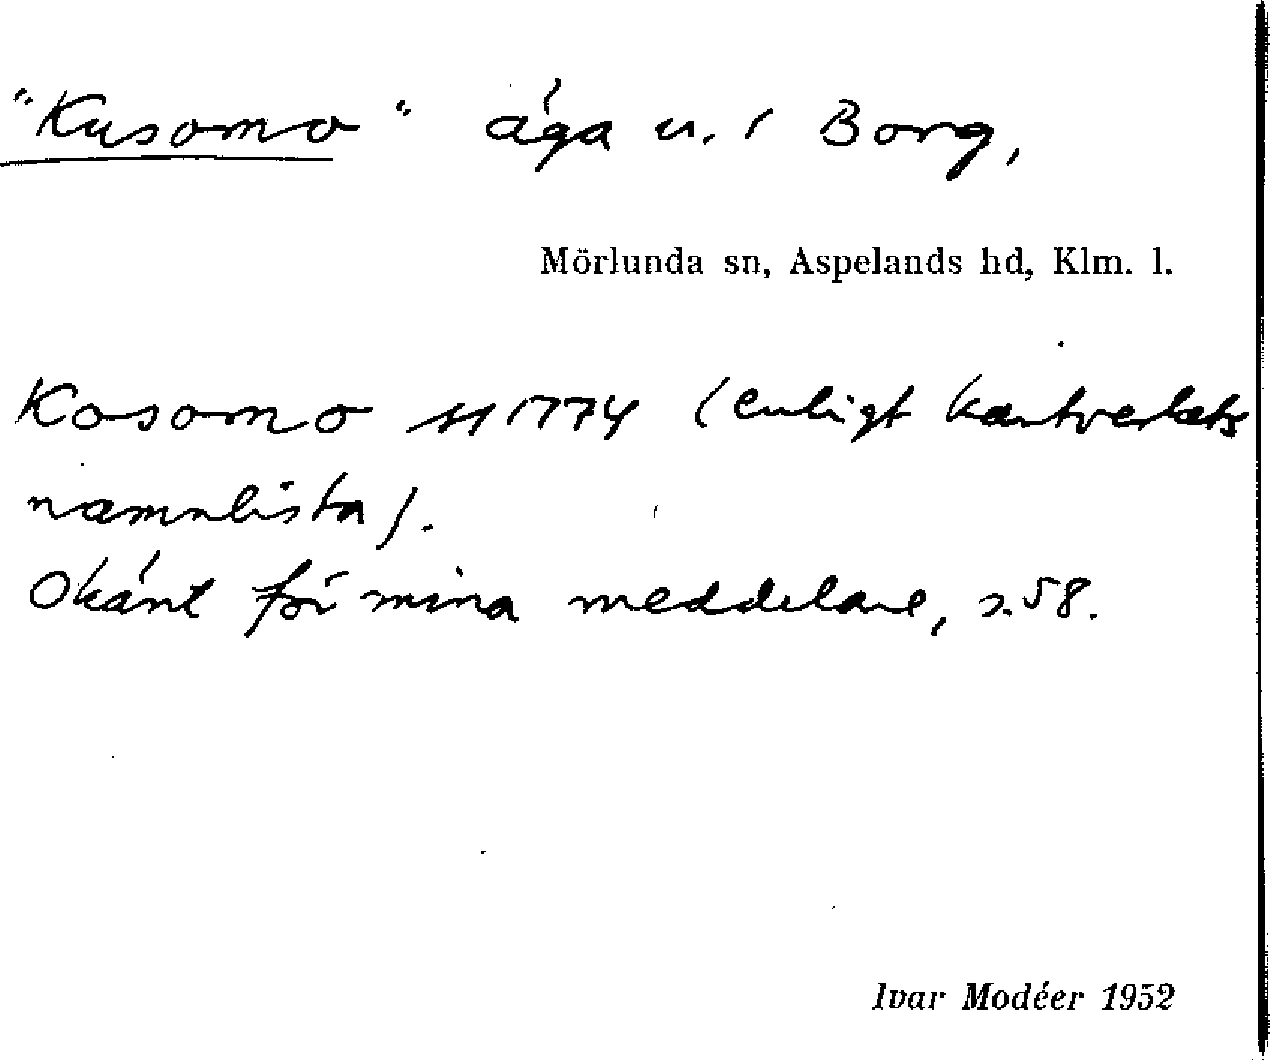 "Kusomo" äga u. i Borg,
Mörlunda sn, Aspelands hd, Klm. l.
Kosomo 1774 (enligt kartverkets
namnlista).
Okänt för mina meddelare, s. 58.
Ivar Modéer 1952